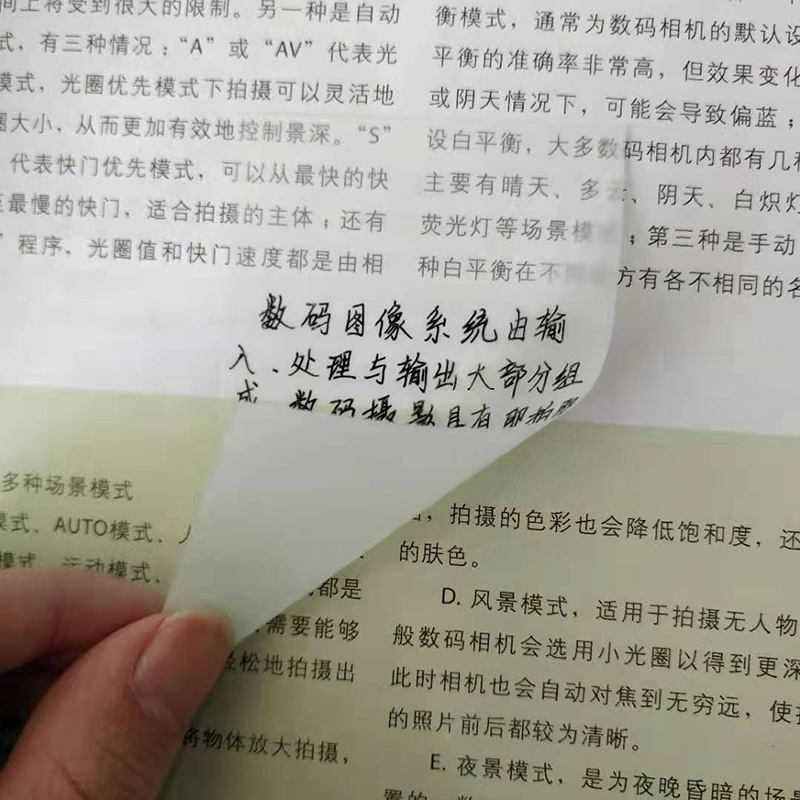 间上将受到很大的限制。另一种是自动
式，有三种情况：“A”或“AV”代表光
模式，光圈优先模式下拍摄可以灵活地
圈大小，从而更加有效地控制景深。“S”
代表快门优先模式，可以从最快的快
至最慢的快门，适合拍摄的主体；还有
”程序、光圈值和快门速度都是由相
衡模式，通常为数码相机的默认设
平衡的准确率非常高，但效果变化
或阴天情况下，可能会导致偏蓝；
设白平衡，大多数码相机内都有几种
主要有晴天、多云、阴天、白炽灯
荧光灯等场景模 ；第三种是手动
种白平衡在不 方有各不相同的名
数码图像系统由输
入、处理与输出大部分组
成 数码摄影具有即拍即
多种场景模式
模式、AUTO模式、人
模式、运动模式、
都是
需要能够
轻松地拍摄出
将物体放大拍摄，
，拍摄的色彩也会降低饱和度，还
的肤色。
D. 风景模式，适用于拍摄无人物
般数码相机会选用小光圈以得到更深
此时相机也会自动对焦到无穷远，使
的照片前后都较为清晰。
E. 夜景模式，是为夜晚昏暗的场景
置的，数